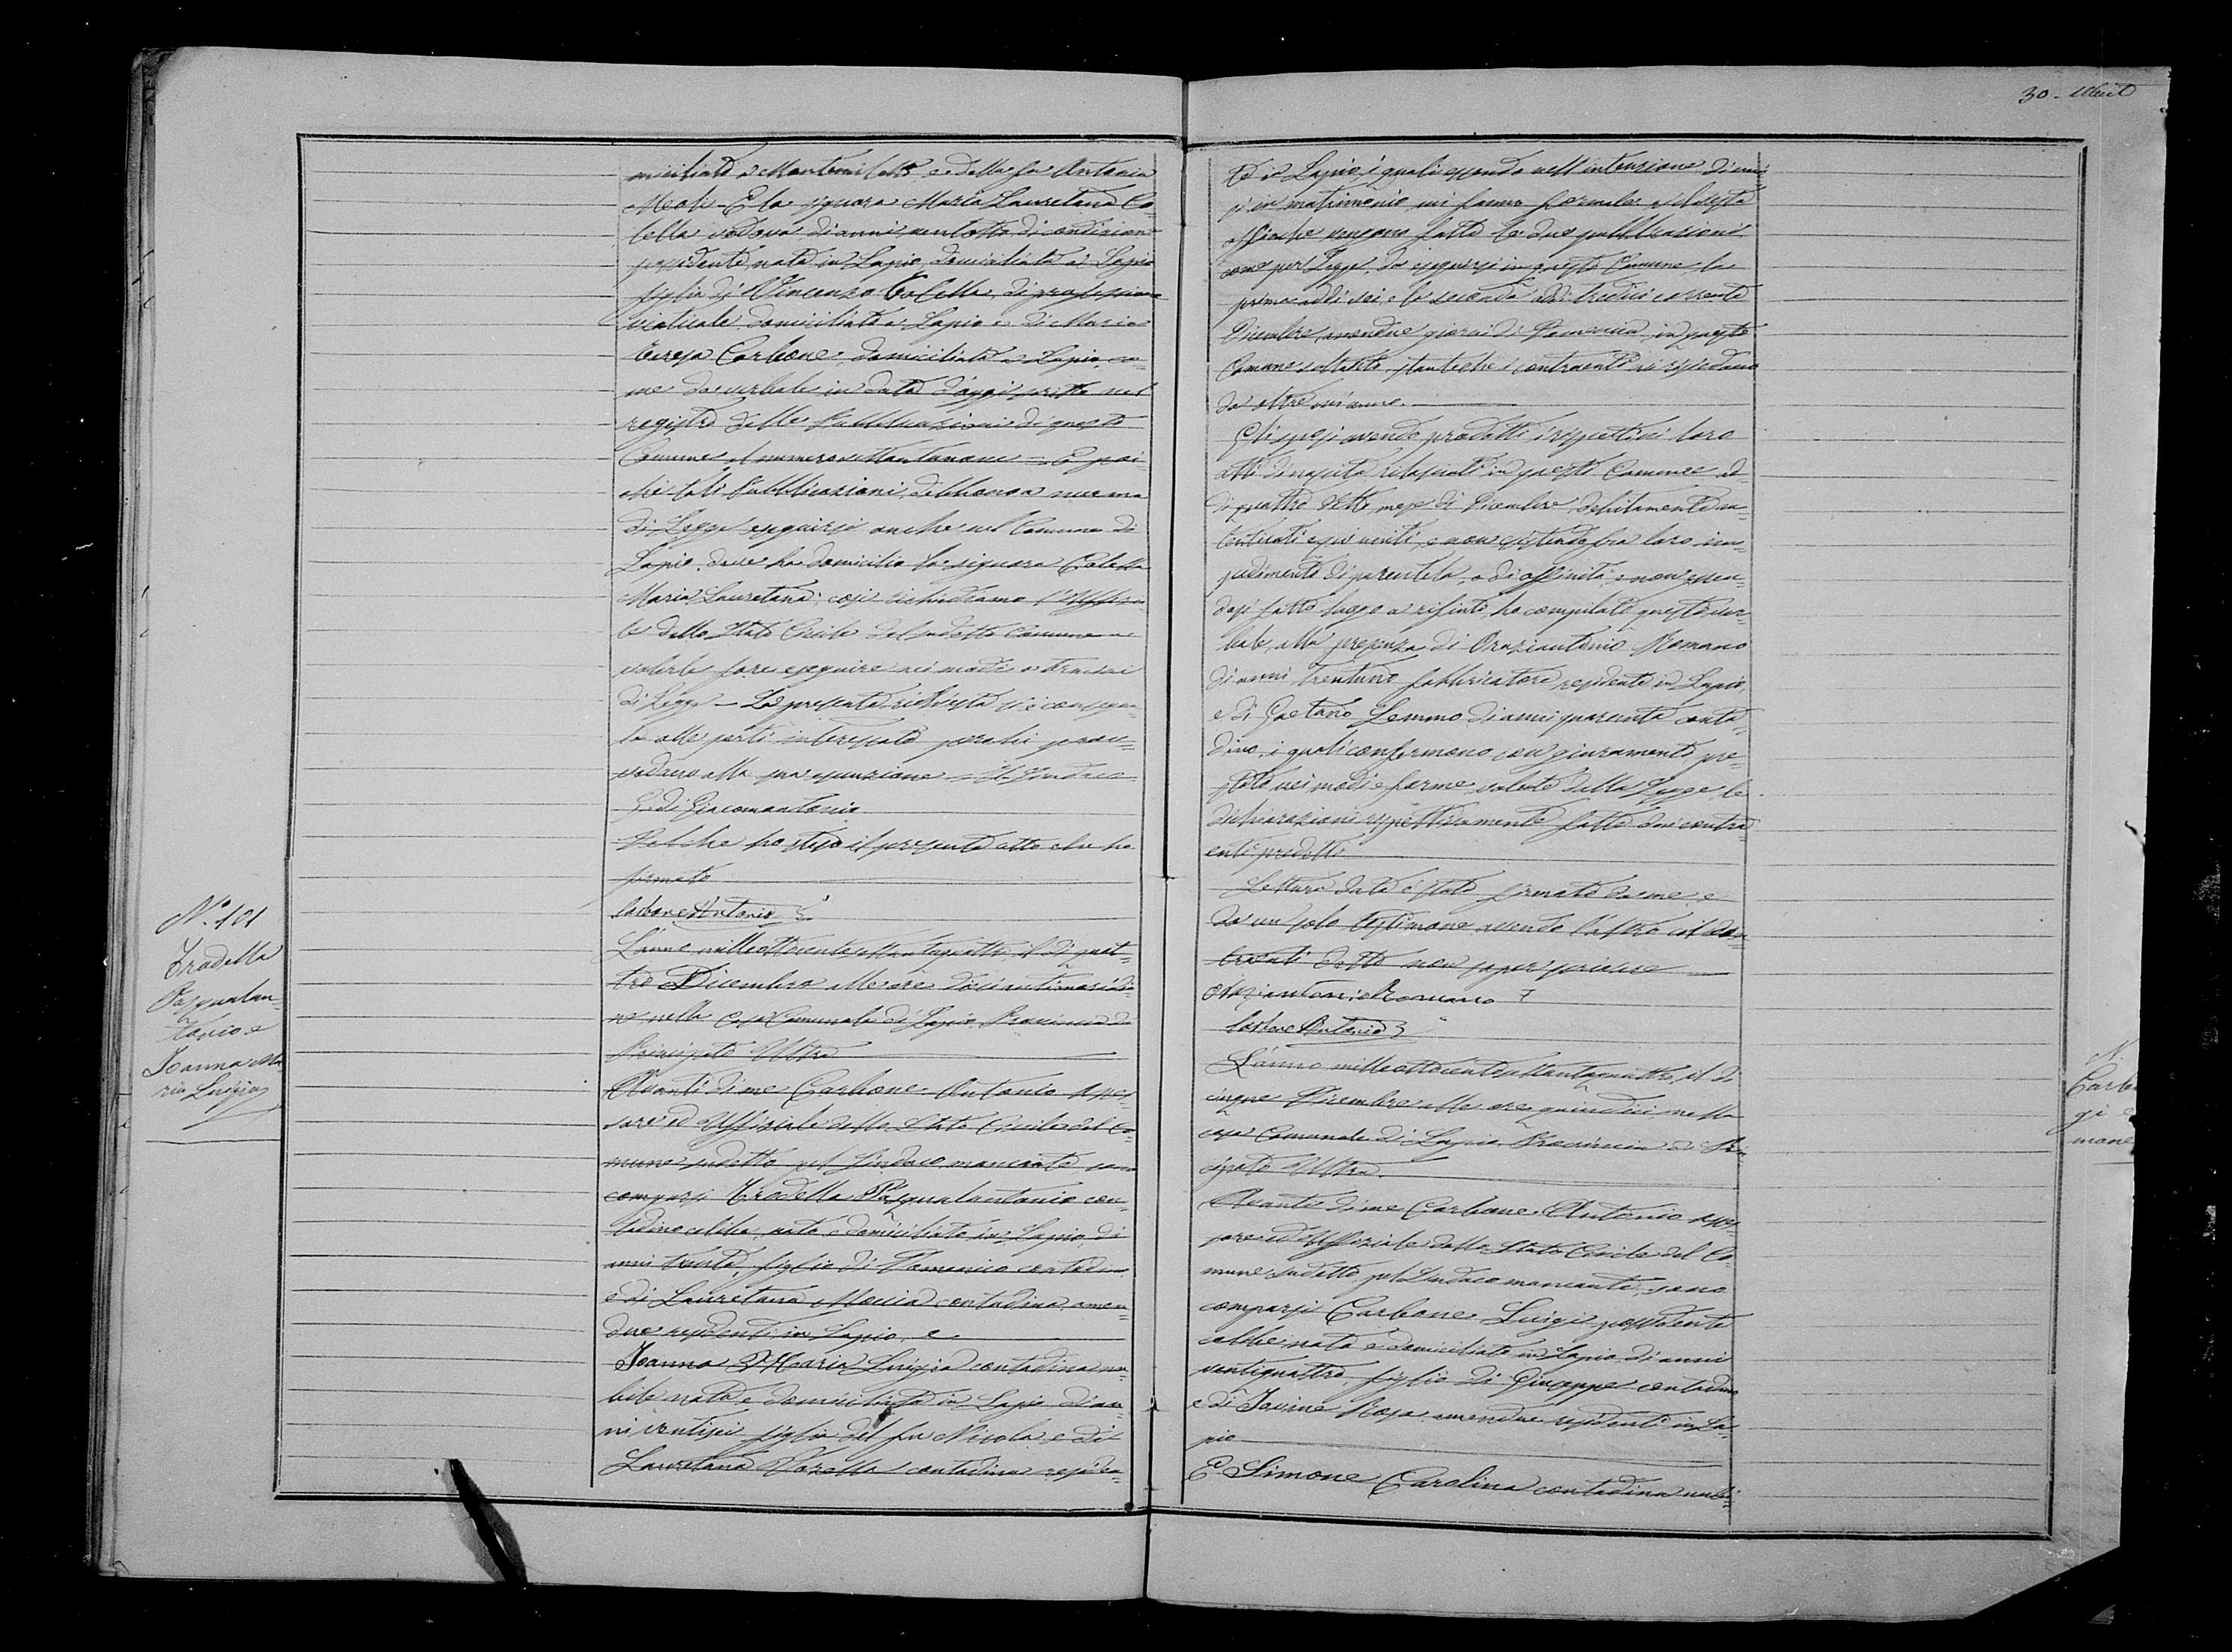 miciliato a Montemiletto, e della fu Antonia
Meoli - E la signora Maria Lauretana Co-
lella vedova di anni ventotto di condizione
possidente nata in Lapio, domiciliata a Lapio
figlia di Vincenzo Colella, di professione
viaticale domiciliato a Lapio e di Maria
Teresa Carbone, domiciliata a Lapio, co-
me da verbale in data d'oggi scritto nel
registro delle Pubblicazioni di questo
Comune al numero settantanove = E poi-
chè tali Pubblicazioni debbono a norma
di Legge eseguirsi anche nel Comune di
Lapio, dove ha domicilio la signora Colella
Maria Lauretana, così richiediamo l'Uffizia-
le dello Stato Civile del sudetto Comune a
volerle fare eseguire nei modi e termini
di Legge - La presente richiesta si consegna
alle parti interessate perchè prov-
vedano alla sua esecuzione = Il Sindaco
di Giacomantonio
Del che ho steso il presente atto che ho
firmato
Carbone Antonio
N.º 101
Tradella
Pasqualan-
tonio e
Joanna Ma
ria Luigia
L'anno milleottocentosettantaquattro il dì quat-
tro Dicembre alle ore dieci antimeridia-
ne nella Casa Comunale di Lapio Provincia di
Principato Ultra
Avanti di me Carbone Antonio Asses-
sore ed Uffiziale dello Stato Civile del Co-
mune sudetto pel Sindaco mancante sono
comparsi Tradella Pasqualantonio con-
tadino celibe, nato e domiciliato in Lapio, di
anni trenta, figlio di Domenico contadino
e di Lauretana Moccia contadina amen-
due residenti in Lapio, e
Joanna Maria Luigia contadina nu-
bile nata e domiciliata in Lapio di an-
ni ventisei figlia del fu Nicola e di
Lauretana contadina residen-
30 -
te in Lapio, i quali essendo nell'intenzione di unir-
si in matrimonio mi fanno formale richiesta
affinchè vengano fatte le due pubblicazioni
come per Legge, da eseguirsi in questo Comune la
prima addì sei, e la seconda addì tredici corrente
Dicembre, amendue giorni di Domenica, in questo
Comune soltanto stantechè i contraenti vi risiedono
da oltre un'anno.
Gli sposi avendo prodotti i rispettivi loro
atti di nascita rilasciati in questo Comune il
dì quattro detto mese di Dicembre debitamente au-
tenticati e non esistendo fra loro im-
pedimento di parentela, o di affinità, e non essen-
dosi fatto luogo a rifiuto, ho compilato questo ver-
bale, alla presenza di Oraziantonio Romano
di anni trentuno fabbricatore residente in Lapio,
e di Gaetano Lemmo di anni quaranta conta-
dino, i quali confermono con giuramento pre-
stato nei modi e forme volute dalla Legge le
dichiarazioni rispettivamente fatte dai contra-
enti predetti
Lettura data è stato firmato da me e
da un solo testimone avendo l'altro ed i con-
traenti detto non saper scrivere
Oraziantonio Romano
Carbone Antonio
L'anno milleottocentosettantaquattro, il dì
cinque Dicembre alle ore quindici nella
casa Comunale di Lapio Provincia di Prin-
cipato Ultra.
Avanti di me Carbone Antonio Asses-
sore ed Uffiziale dello Stato Civile del Co-
mune sudetto pel Sindaco mancante, sono
comparsi Carbone Luigi possidente
celibe nato e domiciliato in Lapio di anni
ventiquattro, figlio di Giuseppe contadino
e di Jovine Rosa amendue residenti in La-
pio
E Simone Carolina contadina nubi-
N.
Carbo
gi e
mone